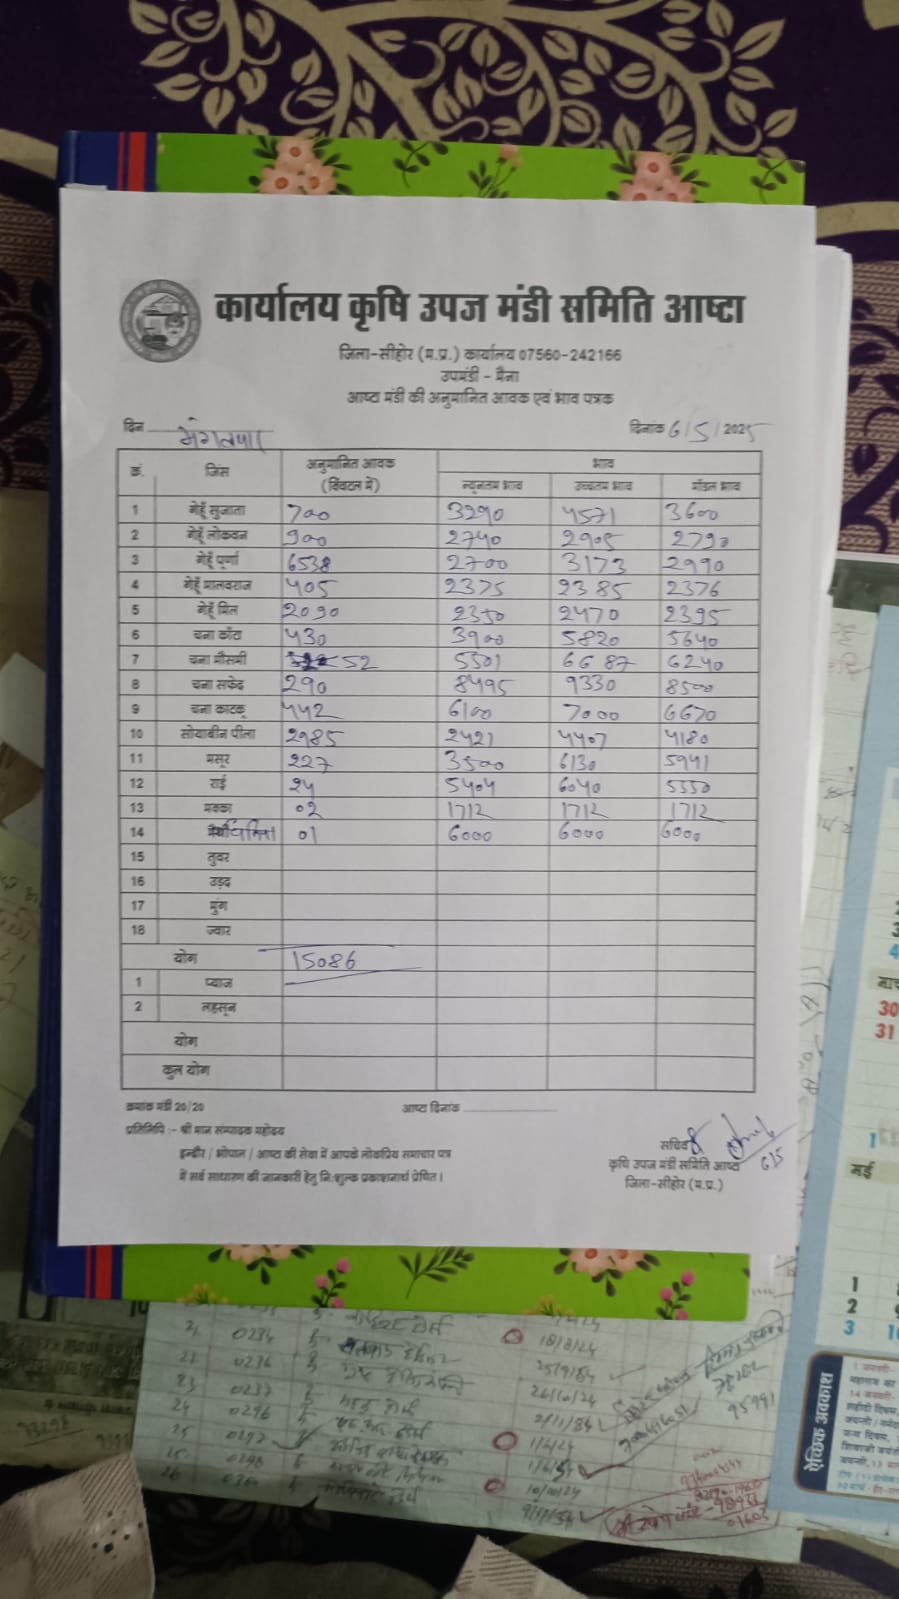 कार्यालय कृषि उपज मंडी समिति आष्टा
जिला-सीहोर (म.प्र.) कार्यालय 07560-242166
उपमंडी - मैना
आष्टा मंडी की अनुमानित आवक एवं भाव पत्रक
दिन मंगलवार दिनांक 6/5/2025
क्रं. जिंस अनुमानित आवक (क्विंटल में) भाव
न्यूनतम भाव उच्चतम भाव मॉडल भाव
1 गेहूँ सुजाता 700 3290 4571 3600
2 गेहूँ लोकवन 900 2740 2905 2790
3 गेहूँ पूर्णा 6538 2700 3173 2990
4 गेहूँ मालवराज 405 2375 2385 2376
5 गेहूँ मिल 2090 2350 2470 2395
6 चना काँटा 430 3900 5820 5640
7 चना मौसमी 52 5501 6687 6240
8 चना सफेद 290 8495 9330 8500
9 चना काटकू 442 6100 7000 6670
10 सोयाबीन पीला 2985 2421 4407 4180
11 मसूर 227 3500 6130 5941
12 राई 24 5404 6040 5550
13 मक्का 02 1712 1712 1712
14 01 6000 6000 6000
15 तुवर
16 उड़द
17 मुंग
18 ज्वार
योग 15086
1 प्याज
2 लहसून
योग
कुल योग
क्रमांक मंडी 20/20 आष्टा दिनांक
प्रतिलिपि :- श्री मान सम्पादक महोदय
इन्दौर / भोपाल / आष्टा की सेवा में आपके लोकप्रिय समाचार पत्र
में सर्व साधारण की जानकारी हेतु नि:शुल्क प्रकाशनार्थ प्रेषित।
सचिव
कृषि उपज मंडी समिति आष्टा
6/5
जिला-सीहोर (म.प्र.)
30
31
मई
1
2
3
ऐच्छिक अवकाश
0234
18/8/24
0236
23 0237
24 0296
25
26
1/4/24
10/10/24